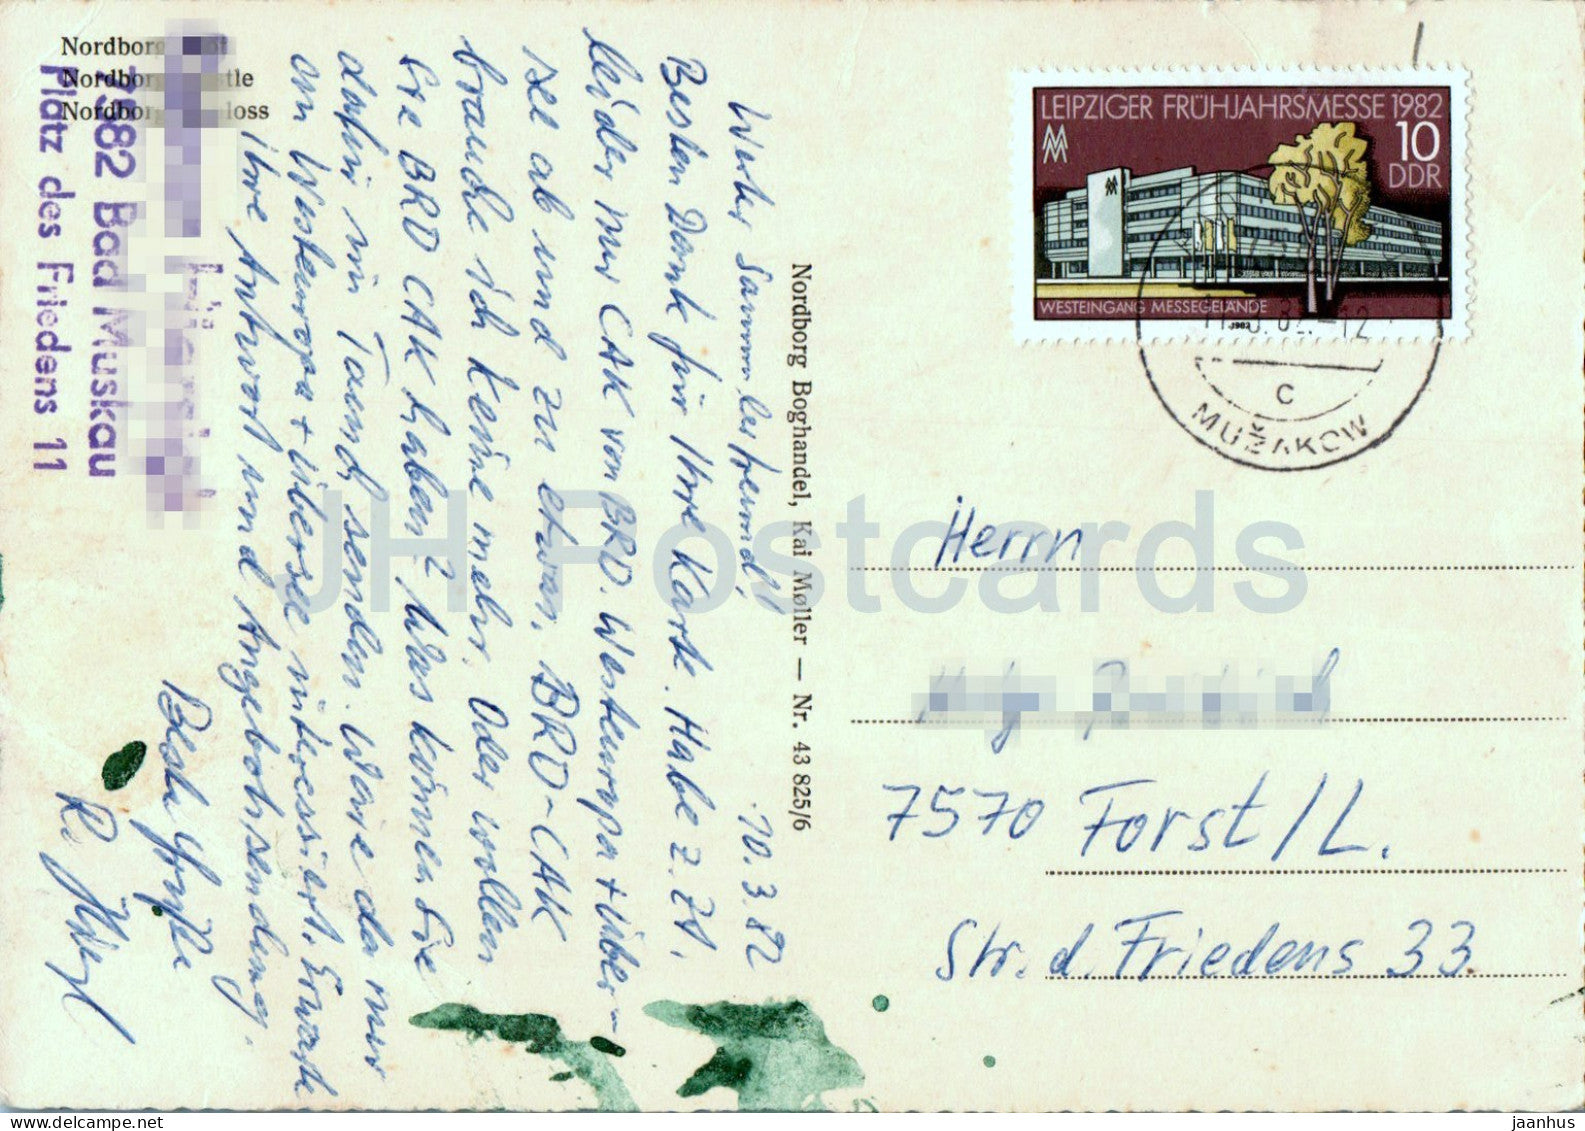 Nordborg
Nordborg
Nordborg
7582 Bad Muskau
Platz des Friedens 11
Werter Sammlerfreund! 10.3.82
Besten Dank für Ihre Karte. Habe z. Zt.
leider nur CAK von BRD. Westeuropa + Über-
see ab und zu etwas. BRD-CAK
brauche ich keine mehr. Oder wollen
Sie BRD CAK haben? Was können Sie
dafür im Tausch senden. Wäre da nur
an Westeuropa + übersee interessiert. Erwarte
Ihre Antwort und Angebotsendung.
Beste Grüße
R.
Nordborg Boghandel, Kai Møller — Nr. 43 825/6
LEIPZIGER FRÜHJAHRSMESSE 1982
10
DDR
WESTEINGANG MESSEGELÄNDE
1982
-12
C
MUŽAKOW
Herrn
7570 Forst/L.
Str. d. Friedens 33
JH Postcards
www.delcampe.net
jaanhus